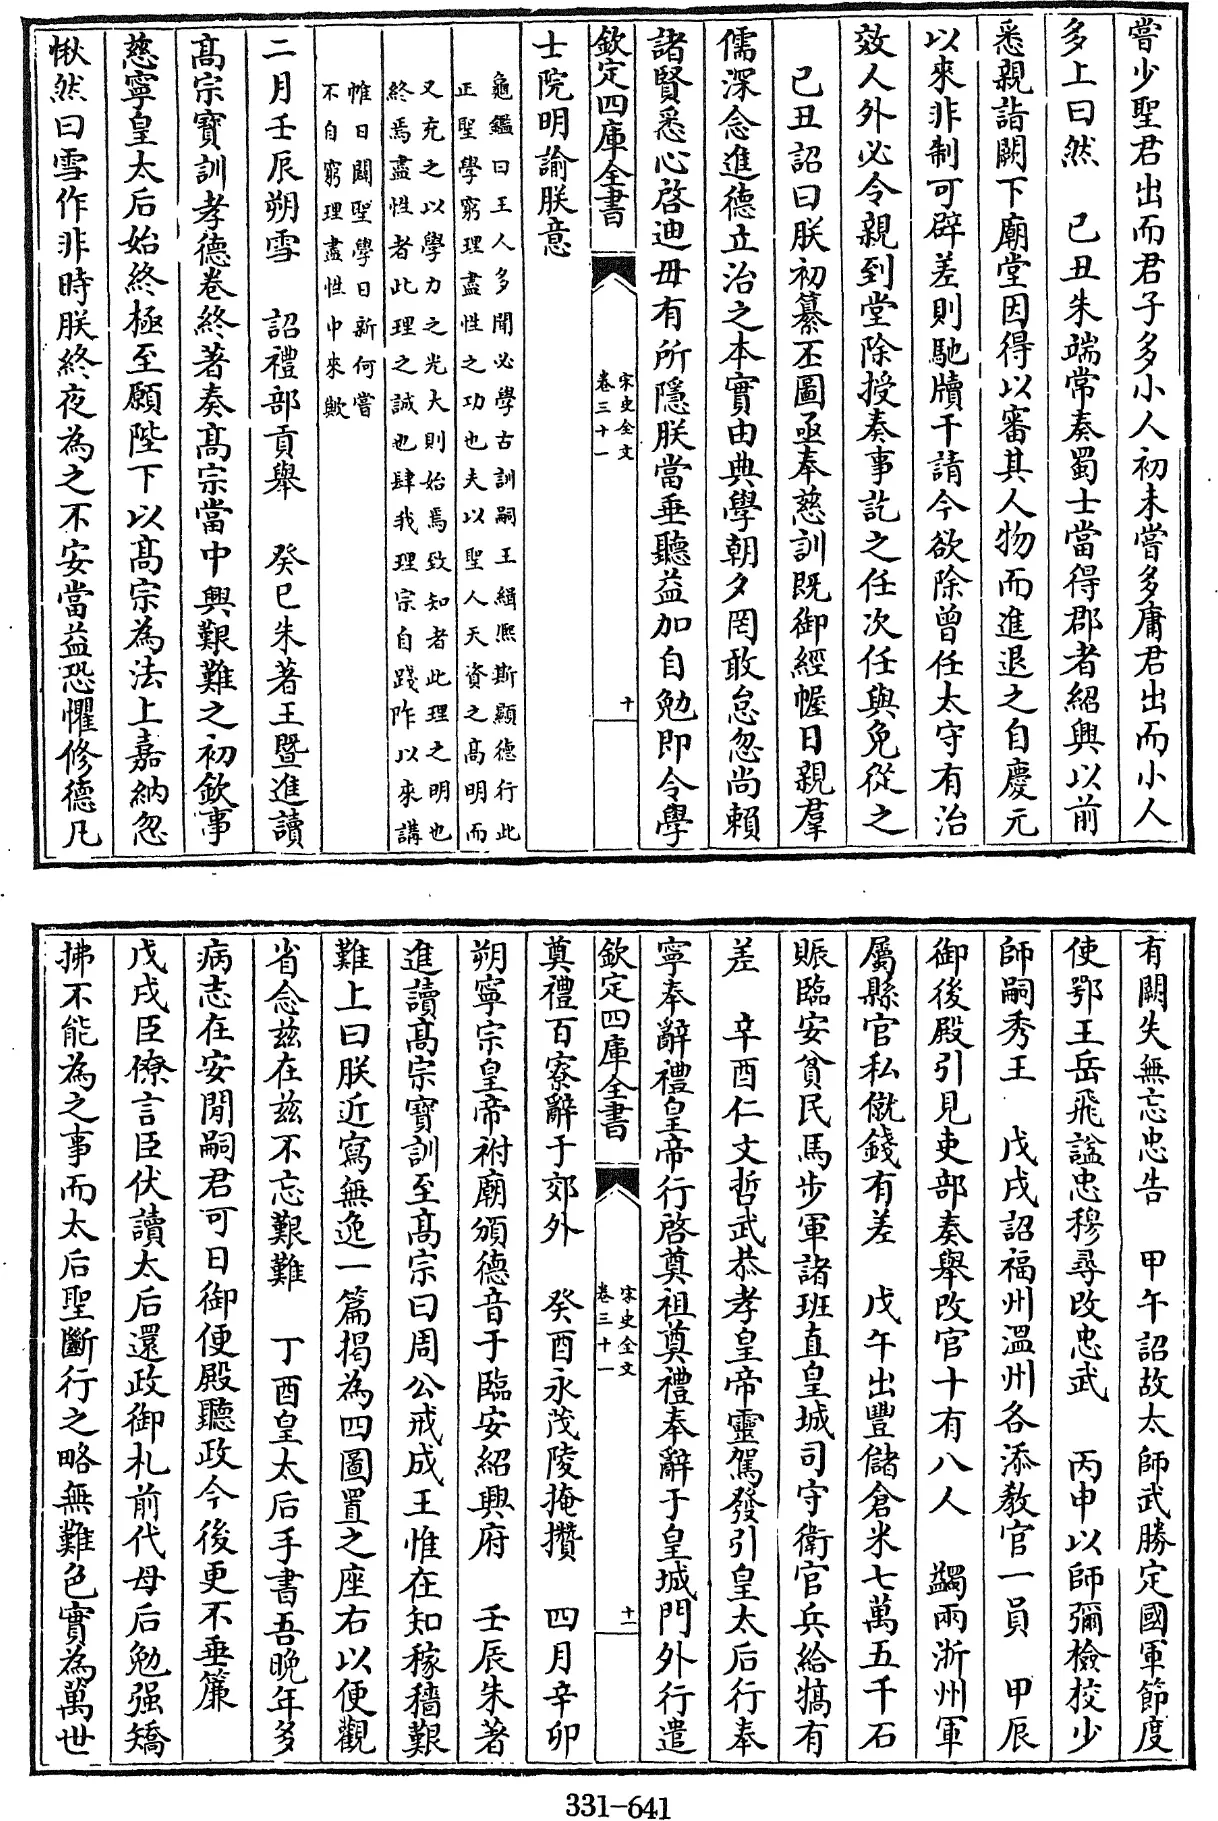 嘗少聖君出而君子多小人初未嘗多庸君出而小人
多上曰然　己丑朱端常奏蜀士當得郡者紹興以前
悉親詣闕下廟堂因得以審其人物而進退之自慶元
以來非制可辟差則馳牘干請今欲除曾任太守有治
效人外必令親到堂除授奏事訖之任次任與免從之
己丑詔曰朕初纂丕圖亟奉慈訓既御經幄日親羣
儒深念進德立治之本實由典學朝夕罔敢怠忽尚賴
諸賢悉心啓迪毋有所隱朕當垂聽益加自勉即令學
欽定四庫全書
宋史全文
卷三十一
十
士院明諭朕意
龜鑑曰王人多聞必學古訓嗣王緝熙斯顯德行此
正聖學窮理盡性之功也夫以聖人天資之高明而
又充之以學力之光大則始焉致知者此理之明也
終焉盡性者此理之誠也肆我理宗自踐阼以來講
帷日闢聖學日新何嘗
不自窮理盡性中來歟
二月壬辰朔雪　詔禮部貢舉　癸巳朱著王暨進讀
髙宗寶訓孝德卷終著奏髙宗當中興艱難之初欽事
慈寧皇太后始終極至願陛下以髙宗為法上嘉納忽
愀然曰雪作非時朕終夜為之不安當益恐懼修德凡
有闕失無忘忠告　甲午詔故太師武勝定國軍節度
使鄂王岳飛謚忠穆尋改忠武　丙申以師彌檢校少
師嗣秀王　戊戌詔福州温州各添教官一員　甲辰
御後殿引見吏部奏舉改官十有八人　蠲兩浙州軍
屬縣官私僦錢有差　戊午出豐儲倉米七萬五千石
賑臨安貧民馬步軍諸班直皇城司守衛官兵給犒有
差　辛酉仁文哲武恭孝皇帝靈駕發引皇太后行奉
寧奉辭禮皇帝行啓奠祖奠禮奉辭于皇城門外行遣
欽定四庫全書
宋史全文
卷三十一
十一
奠禮百寮辭于郊外　癸酉永茂陵掩攢　四月辛卯
朔寧宗皇帝祔廟頒德音于臨安紹興府　壬辰朱著
進讀髙宗寶訓至髙宗曰周公戒成王惟在知稼穡艱
難上曰朕近寫無逸一篇揭為四圖置之座右以便觀
省念兹在兹不忘艱難　丁酉皇太后手書吾晩年多
病志在安閒嗣君可日御便殿聽政今後更不垂簾
戊戌臣僚言臣伏讀太后還政御札前代母后勉强矯
拂不能為之事而太后聖斷行之略無難色實為萬世
331-641